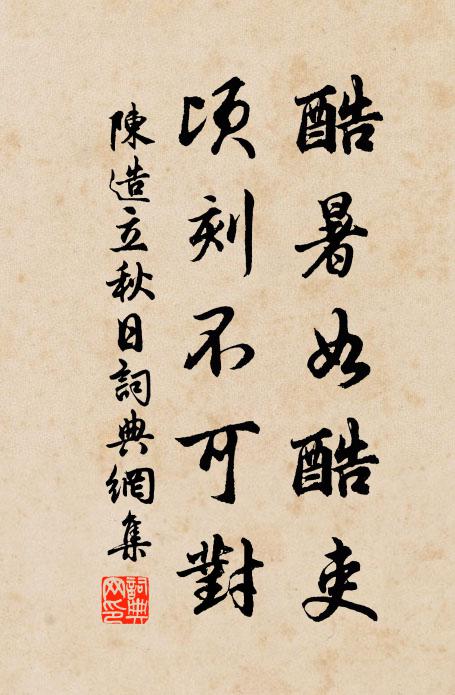 酷暑如酷吏
頃刻不可對
陳造立秋日詞典網集
詞典網印